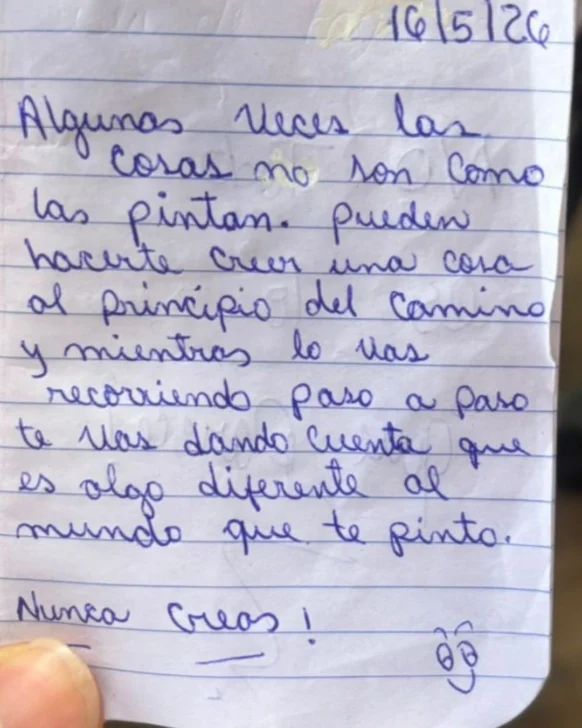 16/5/26
Algunas veces las
cosas no son como
las pintan. pueden
hacerte creer una cosa
al principio del camino
y mientras lo vas
recorriendo paso a paso
te vas dando cuenta que
es algo diferente al
mundo que te pinto.
Nunca creas!